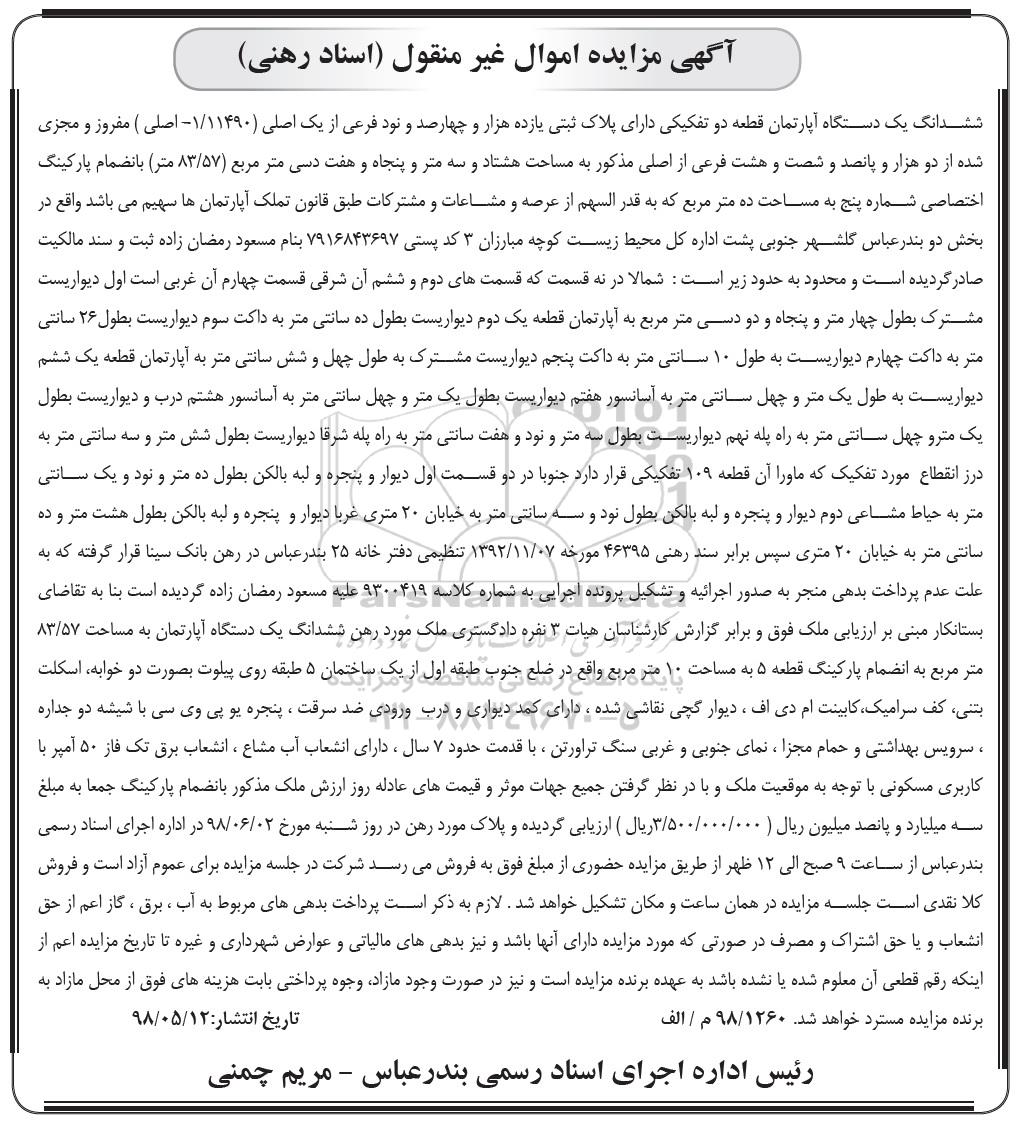 آگهی مزایده اموال غیر منقول (اسناد رهنی)
ششدانگ یک دستگاه آپارتمان قطعه دو تفکیکی دارای پلاک ثبتی یازده هزار و چهارصد و نود فرعی از یک اصلی (۱/۱۱۴۹۰- اصلی ) مفروز و مجزی
شده از دو هزار و پانصد و شصت و هشت فرعی از اصلی مذکور به مساحت هشتاد و سه متر و پنجاه و هفت دسی متر مربع (۸۳/۵۷ متر) بانضمام پارکینگ
اختصاصی شماره پنج به مساحت ده متر مربع که به قدر السهم از عرصه و مشاعات و مشترکات طبق قانون تملک آپارتمان ها سهیم می باشد واقع در
بخش دو بندرعباس گلشهر جنوبی پشت اداره کل محیط زیست کوچه مبارزان ۳ کد پستی ۷۹۱۶۸۴۳۶۹۷ بنام مسعود رمضان زاده ثبت و سند مالکیت
صادرگردیده است و محدود به حدود زیر است : شمالا در نه قسمت که قسمت های دوم و ششم آن شرقی قسمت چهارم آن غربی است اول دیواریست
مشترک بطول چهار متر و پنجاه و دو دسی متر مربع به آپارتمان قطعه یک دوم دیواریست بطول ده سانتی متر به داکت سوم دیواریست بطول۲۶ سانتی
متر به داکت چهارم دیواریست به طول ۱۰ سانتی متر به داکت پنجم دیواریست مشترک به طول چهل و شش سانتی متر به آپارتمان قطعه یک ششم
دیواریست به طول یک متر و چهل سانتی متر به آسانسور هفتم دیواریست بطول یک متر و چهل سانتی متر به آسانسور هشتم درب و دیواریست بطول
یک مترو چهل سانتی متر به راه پله نهم دیواریست بطول سه متر و نود و هفت سانتی متر به راه پله شرقا دیواریست بطول شش متر و سه سانتی متر به
درز انقطاع مورد تفکیک که ماورا آن قطعه ۱۰۹ تفکیکی قرار دارد جنوبا در دو قسمت اول دیوار و پنجره و لبه بالکن بطول ده متر و نود و یک سانتی
متر به حیاط مشاعی دوم دیوار و پنجره و لبه بالکن بطول نود و سه سانتی متر به خیابان ۲۰ متری غربا دیوار و پنجره و لبه بالکن بطول هشت متر و ده
سانتی متر به خیابان ۲۰ متری سپس برابر سند رهنی ۴۶۳۹۵ مورخه ۱۳۹۲/۱۱/۰۷ تنظیمی دفتر خانه ۲۵ بندرعباس در رهن بانک سینا قرار گرفته که به
علت عدم پرداخت بدهی منجر به صدور اجرائیه و تشکیل پرونده اجرایی به شماره کلاسه ۹۳۰۰۴۱۹ علیه مسعود رمضان زاده گردیده است بنا به تقاضای
بستانکار مبنی بر ارزیابی ملک فوق و برابر گزارش کارشناسان هیات ۳ نفره دادگستری ملک مورد رهن ششدانگ یک دستگاه آپارتمان به مساحت ۸۳/۵۷
متر مربع به انضمام پارکینگ قطعه ۵ به مساحت ۱۰ متر مربع واقع در ضلع جنوب طبقه اول از یک ساختمان ۵ طبقه روی پیلوت بصورت دو خوابه، اسکلت
بتنی، کف سرامیک،کابینت ام دی اف ، دیوار گچی نقاشی شده ، دارای کمد دیواری و درب ورودی ضد سرقت ، پنجره یو پی وی سی با شیشه دو جداره
، سرویس بهداشتی و حمام مجزا ، نمای جنوبی و غربی سنگ تراورتن ، با قدمت حدود ۷ سال ، دارای انشعاب آب مشاع ، انشعاب برق تک فاز ۵۰ آمپر با
کاربری مسکونی با توجه به موقعیت ملک و با در نظر گرفتن جمیع جهات موثر و قیمت های عادله روز ارزش ملک مذکور بانضمام پارکینگ جمعا به مبلغ
سه میلیارد و پانصد میلیون ریال ( ۳/۵۰۰/۰۰۰/۰۰۰ریال ) ارزیابی گردیده و پلاک مورد رهن در روز شنبه مورخ ۹۸/۰۶/۰۲ در اداره اجرای اسناد رسمی
بندرعباس از ساعت ۹ صبح الی ۱۲ ظهر از طریق مزایده حضوری از مبلغ فوق به فروش می رسد شرکت در جلسه مزایده برای عموم آزاد است و فروش
کلا نقدی است جلسه مزایده در همان ساعت و مکان تشکیل خواهد شد . لازم به ذکر است پرداخت بدهی های مربوط به آب ، برق ، گاز اعم از حق
انشعاب و یا حق اشتراک و مصرف در صورتی که مورد مزایده دارای آنها باشد و نیز بدهی های مالیاتی و عوارض شهرداری و غیره تا تاریخ مزایده اعم از
اینکه رقم قطعی آن معلوم شده یا نشده باشد به عهده برنده مزایده است و نیز در صورت وجود مازاد، وجوه پرداختی بابت هزینه های فوق از محل مازاد به
برنده مزایده مسترد خواهد شد. ۹۸/۱۲۶۰ م / الف تاریخ انتشار:۹۸/۰۵/۱۲
رئیس اداره اجرای اسناد رسمی بندرعباس - مریم چمنی
ParsNamadData
پایگاه اطلاع رسانی مناقصه و مزایده
۰۲۱-۸۸۳۴۹۶۷۰-۵